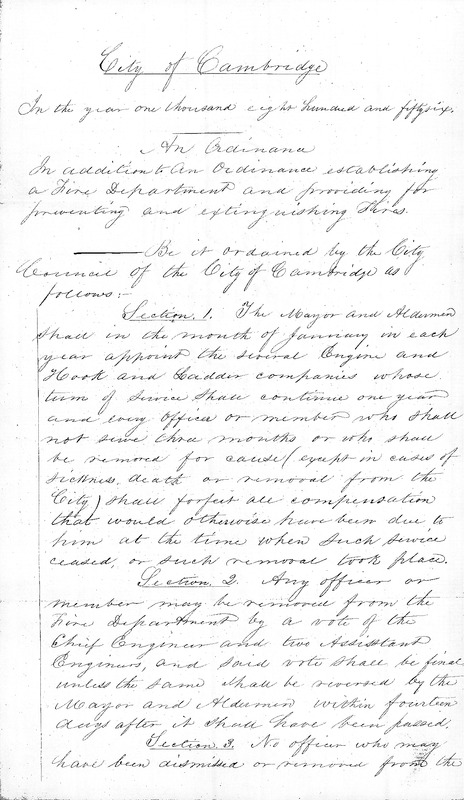 City of Cambridge
In the year one thousand eight hundred and fifty six.
An Ordinance
In addition to An Ordinance establishing
a Fire Department and providing for
preventing and extinguishing Fires.
Be it ordained by the City
Council of the City of Cambridge as
follows:-
Section. 1. The Mayor and Aldermen
shall in the month of January in each
year appoint the several Engine and
Hook and Ladder companies whose
term of service shall continue one year
and every officer or member who shall
not serve three months or who shall
be removed for cause (except in cases of
sickness, death or removal from the
City) shall forfeit all compensation
that would otherwise have been due to
him at the time when such service
ceased, or such removal took place.
Section. 2. Any officer or
member may be removed from the
Fire Department by a vote of the
Chief Engineer and two Assistant
Engineers, and said vote shall be final
unless the same shall be reversed by the
Mayor and Aldermen within fourteen
days after it shall have been passed.
Section 3. No officer who may
have been dismissed or removed from the